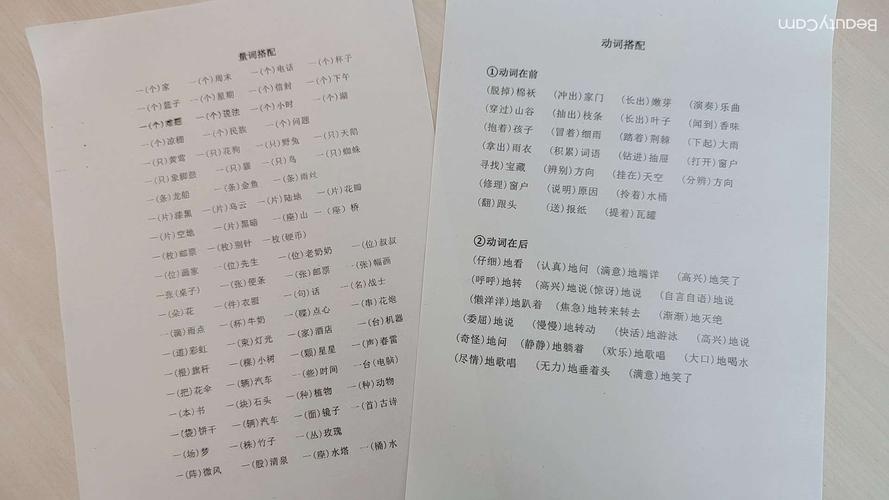 量词搭配
一(个)家 一(个)周末 一(个)电话 一(个)杯子
一(个)篮子 一(个)星期 一(个)信封 一(个)下午
一(个)难题 一(个)说法 一(个)小时 一(个)湖
一(个)凉棚 一(个)民族 一(个)问题
一(只)黄莺 一(只)花狗 一(只)野兔 一(只)天鹅
一(只)象脚鼓 一(只)猫 一(只)鸟 一(只)蜘蛛
一(条)龙船 一(条)金鱼 一(条)雨丝
一(片)漆黑 一(片)乌云 一(片)陆地 一(片)花瓣
一(片)空地 一(片)黑暗 一(座)山 一(座)桥
一(枚)邮票 一(枚)别针 一枚(硬币)
一(位)画家 一(位)先生 一(位)老奶奶 一(位)叔叔
一张(桌子) 一(张)便条 一(张)邮票 一(张)
一(朵)花 一(件)衣 一(句)话 一(名)战士
一(滴)雨点 一(杯)牛奶 一(碟)点心 一(串)花炮
一(道)彩虹 一(束)灯光 一(家)酒店 一(台)机器
一(根)旗杆 一(棵)小树 一(颗)星星 一(声)春雷
一(把)花伞 一(辆)汽车 一(些)时间 一台(电脑)
一(本)书 一(块)石头 一(种)植物 一(种)动物
一(袋)饼干 一(辆)汽车 一(面)镜子 一(首)古诗
一(场)梦 一(株)竹子 一(丛)玫瑰
一(阵)微风 一(股)清泉 一(座)水塔 一(桶)水
动词搭配
①动词在前
(脱掉)棉袄 (冲出)家门 (长出)嫩芽 (演奏)乐曲
(穿过)山谷 (抽出)枝条 (长出)叶子 (闻到)香味
(抱着)孩子 (冒着)细雨 (踏着)荆棘 (下起)大雨
(拿出)雨衣 (积累)词语 (钻进)抽屉 (打开)窗户
(寻找)宝藏 (辨别)方向 (挂在)天空 (分辨)方向
(修理)窗户 (说明)原因 (拎着)水桶
(翻)跟头 (送)报纸 (提着)瓦罐
②动词在后
(仔细)地看 (认真)地问 (满意)地端详 (高兴)地笑了
(呼呼)地转 (高兴)地说(惊讶)地说 (自言自语)地说
(懒洋洋)地趴着 (焦急)地转来转去 (渐渐)地灭绝
(委屈)地说 (慢慢)地转动 (快活)地游泳 (高兴)地说
(奇怪)地问 (静静)地躺着 (欢乐)地歌唱 (大口)地喝水
(尽情)地歌唱 (无力)地垂着头 (满意)地笑了
BeautyCam